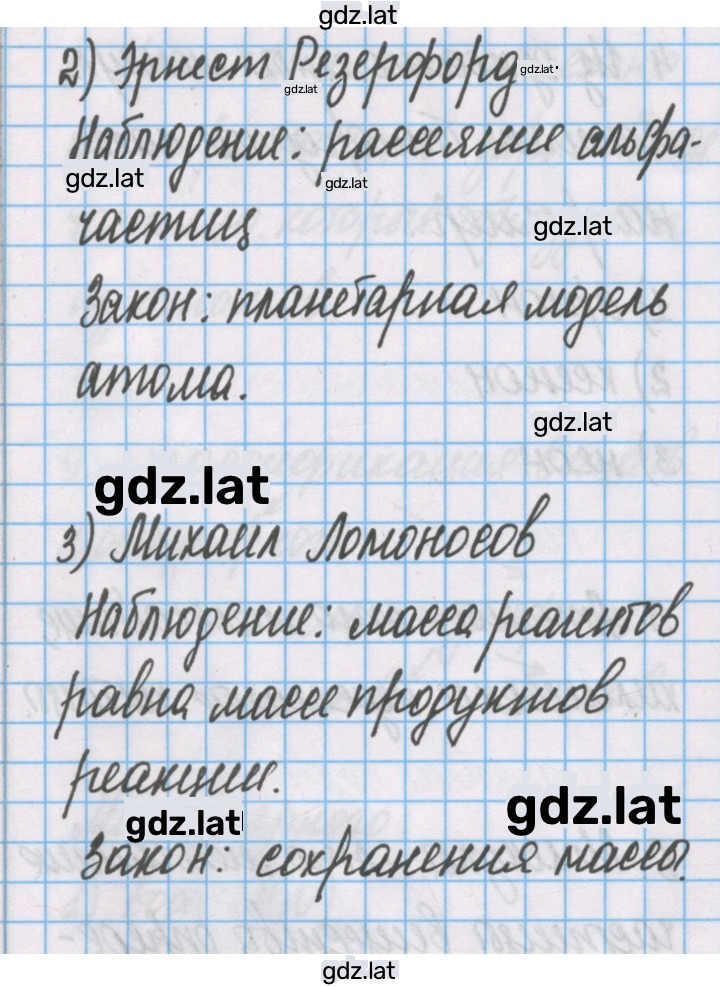 gdz.lat
2) Эрнест Резерфорд
gdz.lat
gdz.lat
Наблюдение: рассеяние альфа-
gdz.lat
gdz.lat
частиц
gdz.lat
Закон: планетарная модель
атома.
gdz.lat
gdz.lat
3) Михаил Ломоносов
Наблюдение: масса реагентов
равна массе продуктов
реакции.
gdz.lat
gdz.lat
Закон: сохранения массы.
gdz.lat